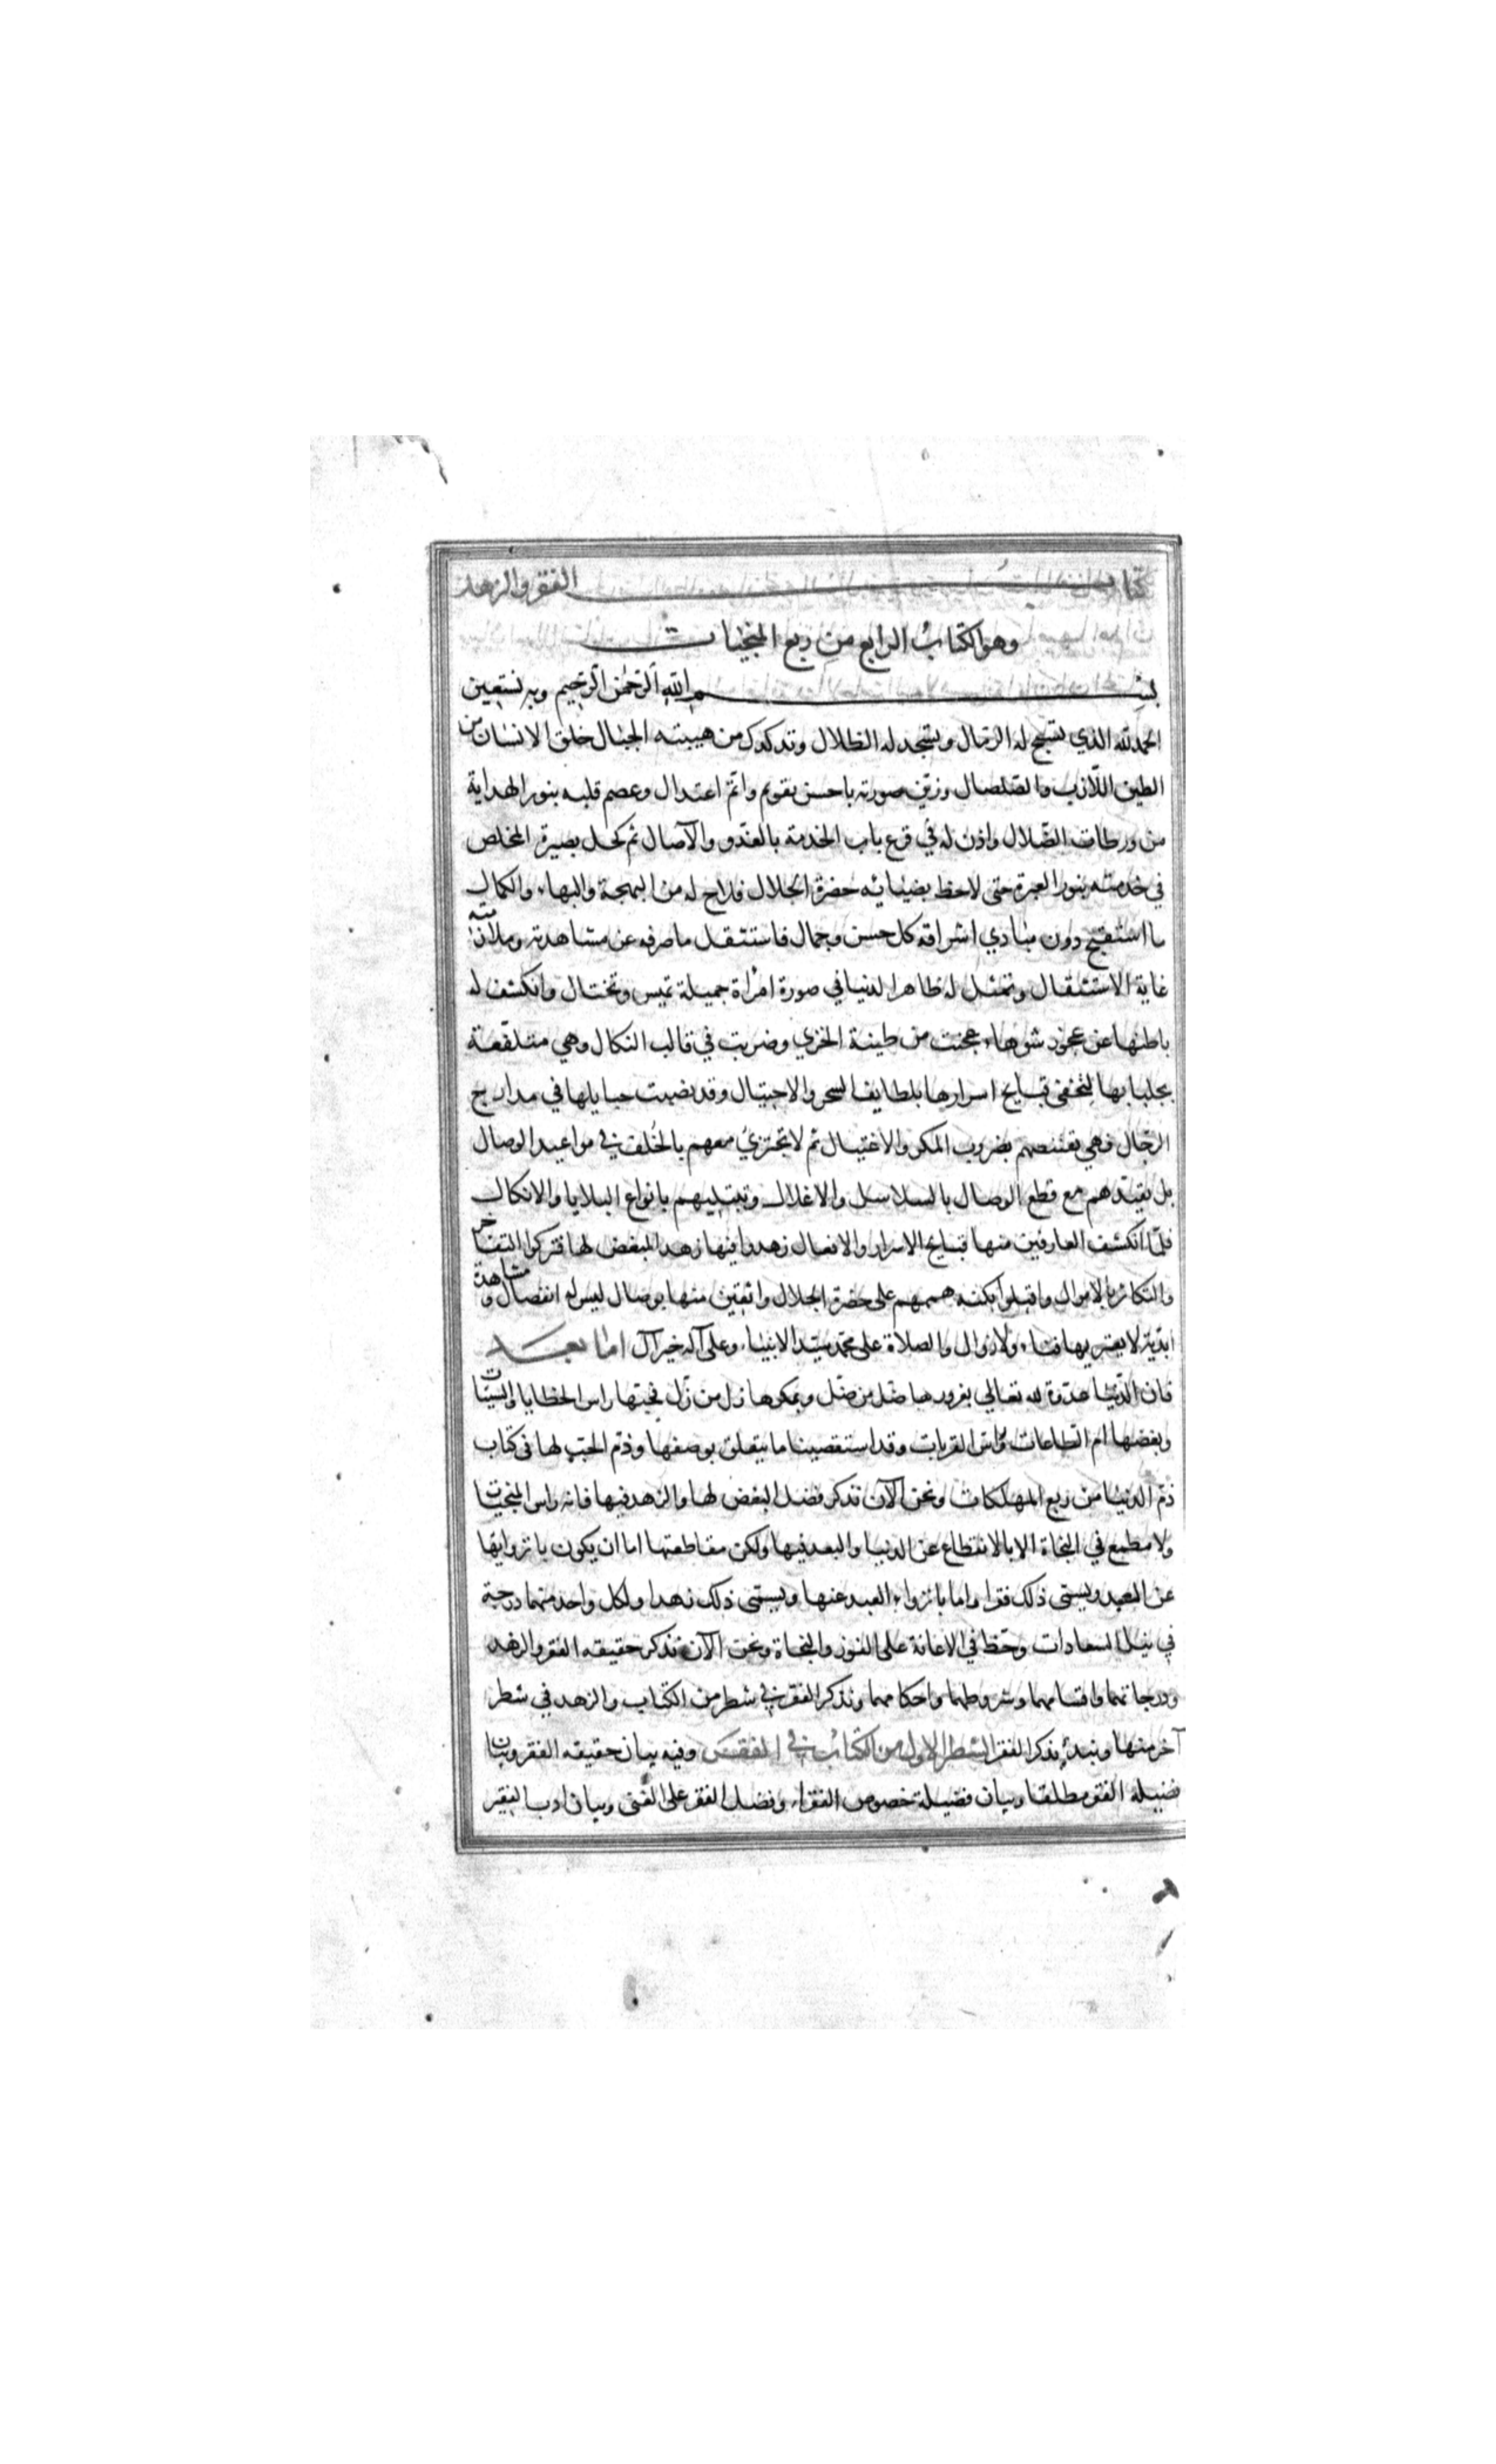 كتاب الفقر والزهد
وهو الكتاب الرابع من ربع المنجيات
بسم الله الرحمن الرحيم وبه نستعين
الحمد لله الذي تسبح له الرمال وتسجد له الظلال وتدكدك من هيبته الجبال خلق الانسان من
الطين اللازب والصلصال وزين صورته باحسن تقويم واتم اعتدال وعصم قلبه بنور الهداية
من ورطات الضلال واذن له في قرع باب الخدمة بالغدو والآصال ثم كحل بصيرة المخلص
في خدمته بنور العبرة حتى لاحظ بضيائه حضرة الجلال فلاح له من البهجة والبهاء والكمال
ما استقبح دون مبادي اشراقه كل حسن وجمال فاستثقل ما صرفه عن مشاهدته وملازمته
غاية الاستثقال وتمثل له ظاهر الدنيا في صورة امرأة جميلة تميس وتختال وانكشف له
باطنها عن عجوز شوهاء عجنت من طينة الخزي وضربت في قالب النكال وهي متلفعة
بجلبابها لتخفى قبايح اسرارها بلطايف السحر والاحتيال وقد نصبت حبايلها في مدارج
الرجال فهي تقتنصهم بضروب المكر والاغتيال ثم لا تجتزئ معهم بالخلف في مواعيد الوصال
بل تقيدهم مع قطع الوصال بالسلاسل والاغلال وتبتليهم بانواع البلايا والانكال
فلما انكشف العارفين منها قبايح الاسرار والافعال زهدوا فيها زهد المبغض لها فتركوا التفاخر
والتكاثر بالاموال واقبلوا بكنه هممهم على حضرة الجلال واثقين منها بوصال ليس له انفصال ومشاهدة
ابدية لا يعتريها فناء ولا زوال والصلاة على محمد سيد الانبياء وعلى آله خير آل اما بعد
فان الدنيا عدوة لله تعالي بغرورها ضل من ضل وبمكرها زل من زل فحبها راس الخطايا والسيئات
وبغضها ام الطاعات واس القربات وقد استقصينا ما يتعلق بوصفها وذم الحب لها في كتاب
ذم الدنيا من ربع المهلكات ونحن الآن نذكر فضل البغض لها والزهد فيها فانه راس المنجيات
ولا مطمع في النجاة الا بالانقطاع عن الدنيا والبعد فيها ولكن مقاطعتها اما ان يكون بانزوايها
عن العبد ويسمى ذلك فقرا واما بانزواء العبد عنها ويسمى ذلك زهدا ولكل واحد منهما درجة
في نيل السعادات وحظ في الاعانة على الفوز والنجاة ونحن الآن نذكر حقيقه الفقر والزهد
ودرجاتهما واقسامهما وشروطهما واحكامهما ونذكر الفقر في شطر من الكتاب والزهد في شطر
آخر منها ونبدأ بذكر الفقر الشطر الاول من الكتاب في الفقر وفيه بيان حقيقه الفقر وبيان
فضيلة الفقر مطلقا وبيان فضيلة خصوص الفقراء وفضل الفقر على الغنى وبيان ادب الفقير